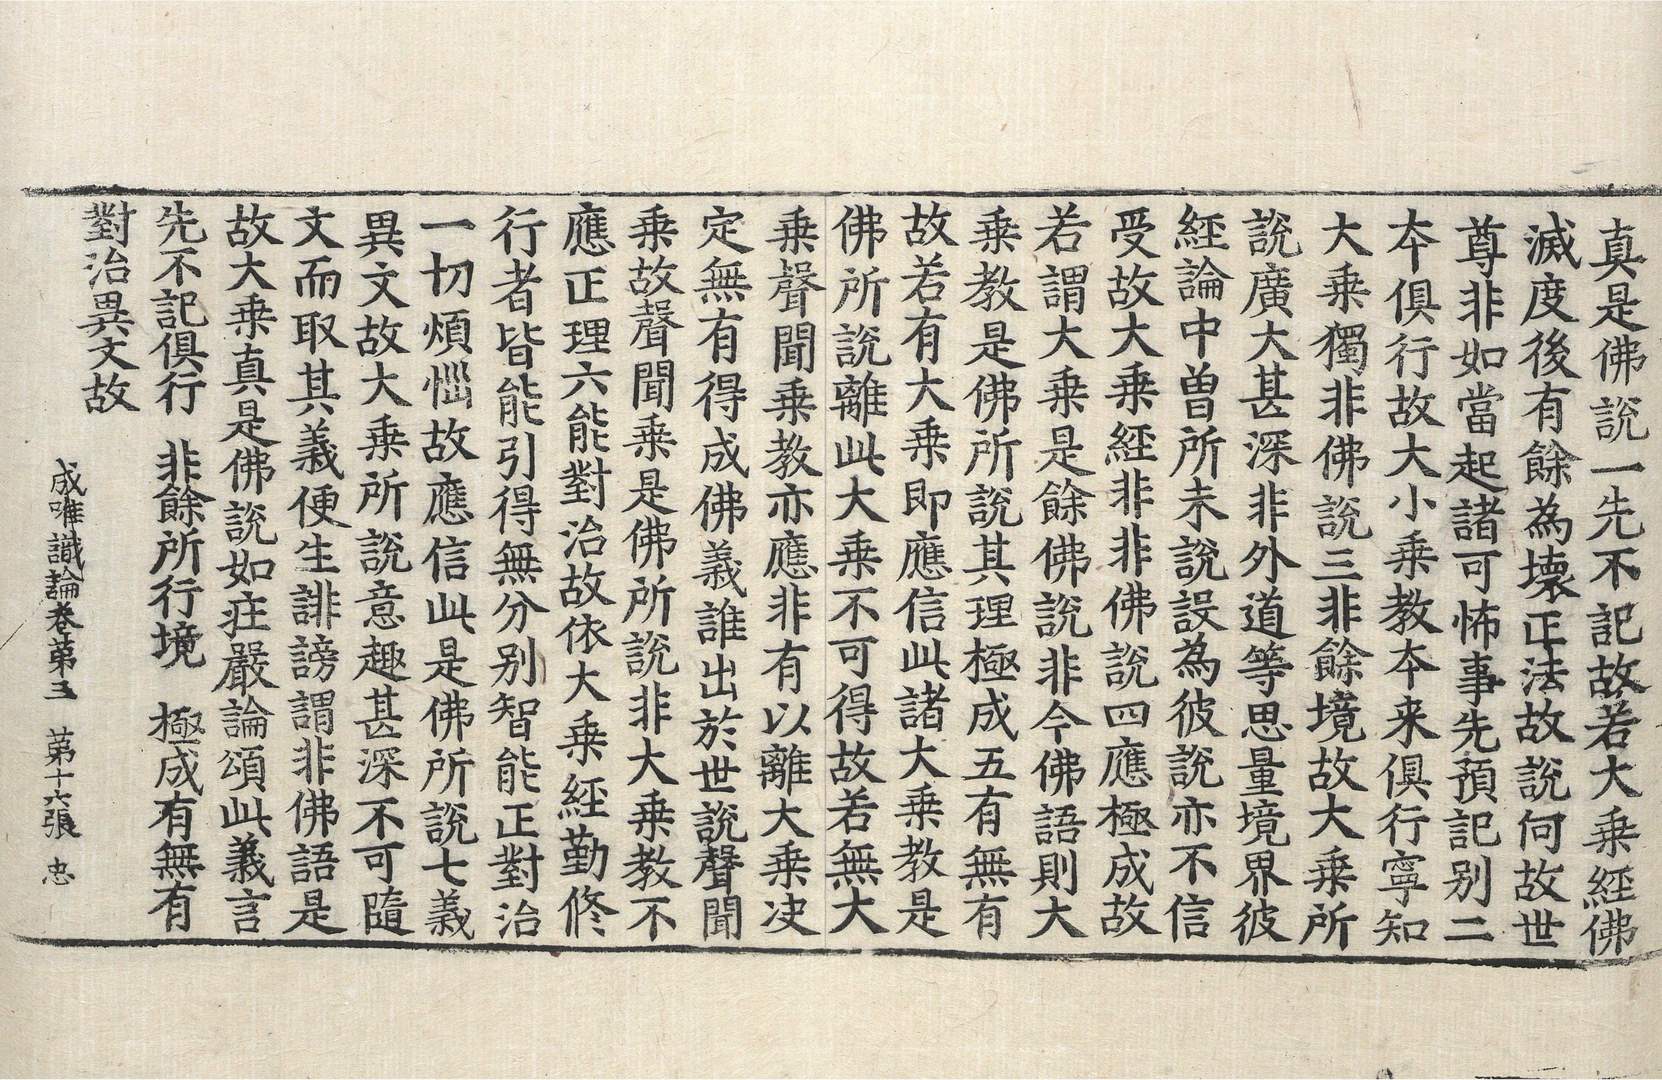 真是佛說一先不記故若大乗經佛
滅度後有餘為壞正法故說何故世
尊非如當起諸可怖事先預記别二
夲俱行故大小乗教夲来俱行寧知
大乗獨非佛說三非餘境故大乗所
說廣大甚深非外道等思量境界彼
經論中曽所未說設為彼說亦不信
受故大乗經非非佛說四應極成故
若謂大乗是餘佛說非今佛語則大
乗教是佛所說其理極成五有無有
故若有大乗即應信此諸大乗教是
佛所說離此大乗不可得故若無大
乗聲聞乗教亦應非有以離大乗决
定無有得成佛義誰出於世說聲聞
乗故聲聞乗是佛所說非大乗教不
應正理六能對治故依大乗經勤修
行者皆能引得無分别智能正對治
一切煩惱故應信此是佛所說七義
異文故大乗所說意趣甚深不可隨
文而取其義便生誹謗謂非佛語是
故大乗真是佛說如莊嚴論頌此義言
先不記俱行 非餘所行境 極成有無有
對治異文故
成唯識論卷第三 第十六張 忠